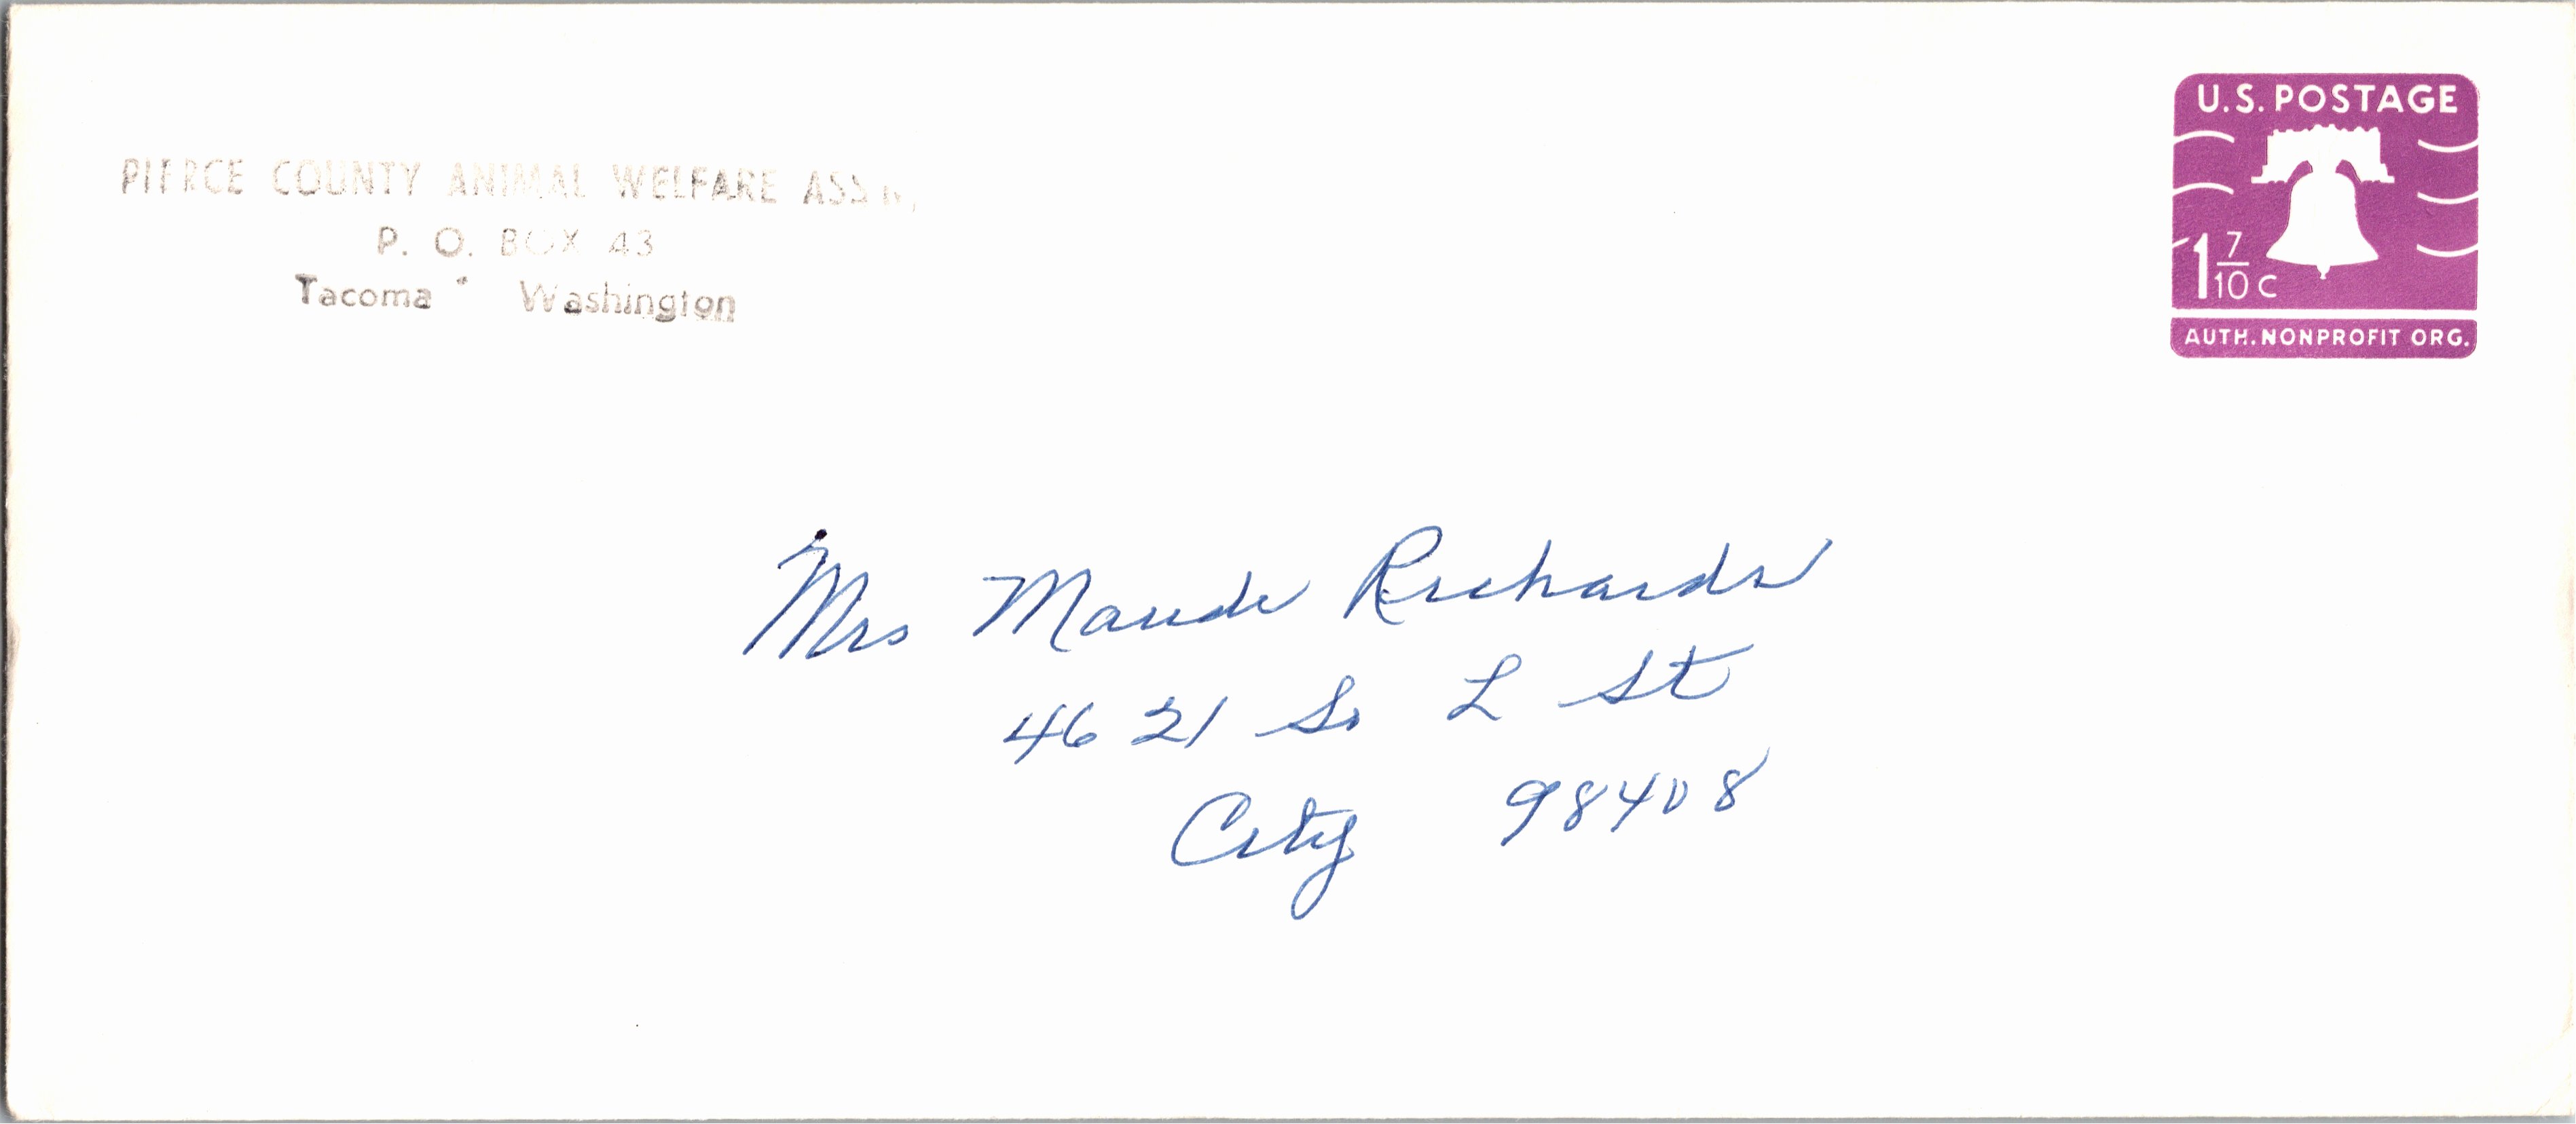 PIERCE COUNTY ANIMAL WELFARE ASS'N,
P. O. BOX 43
Tacoma Washington
U.S. POSTAGE
1 7/10 c
AUTH. NONPROFIT ORG.
Mrs Maude Richards
4621 So L St
City 98408